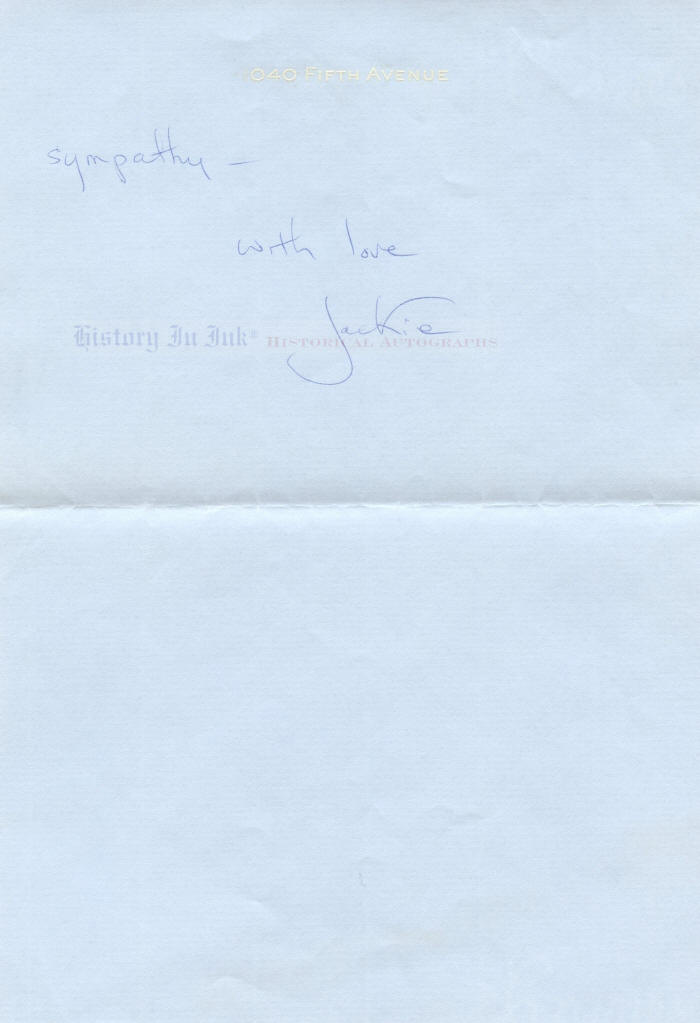 1040 Fifth Avenue
sympathy —
with love
Jackie
History In Ink® Historical Autographs